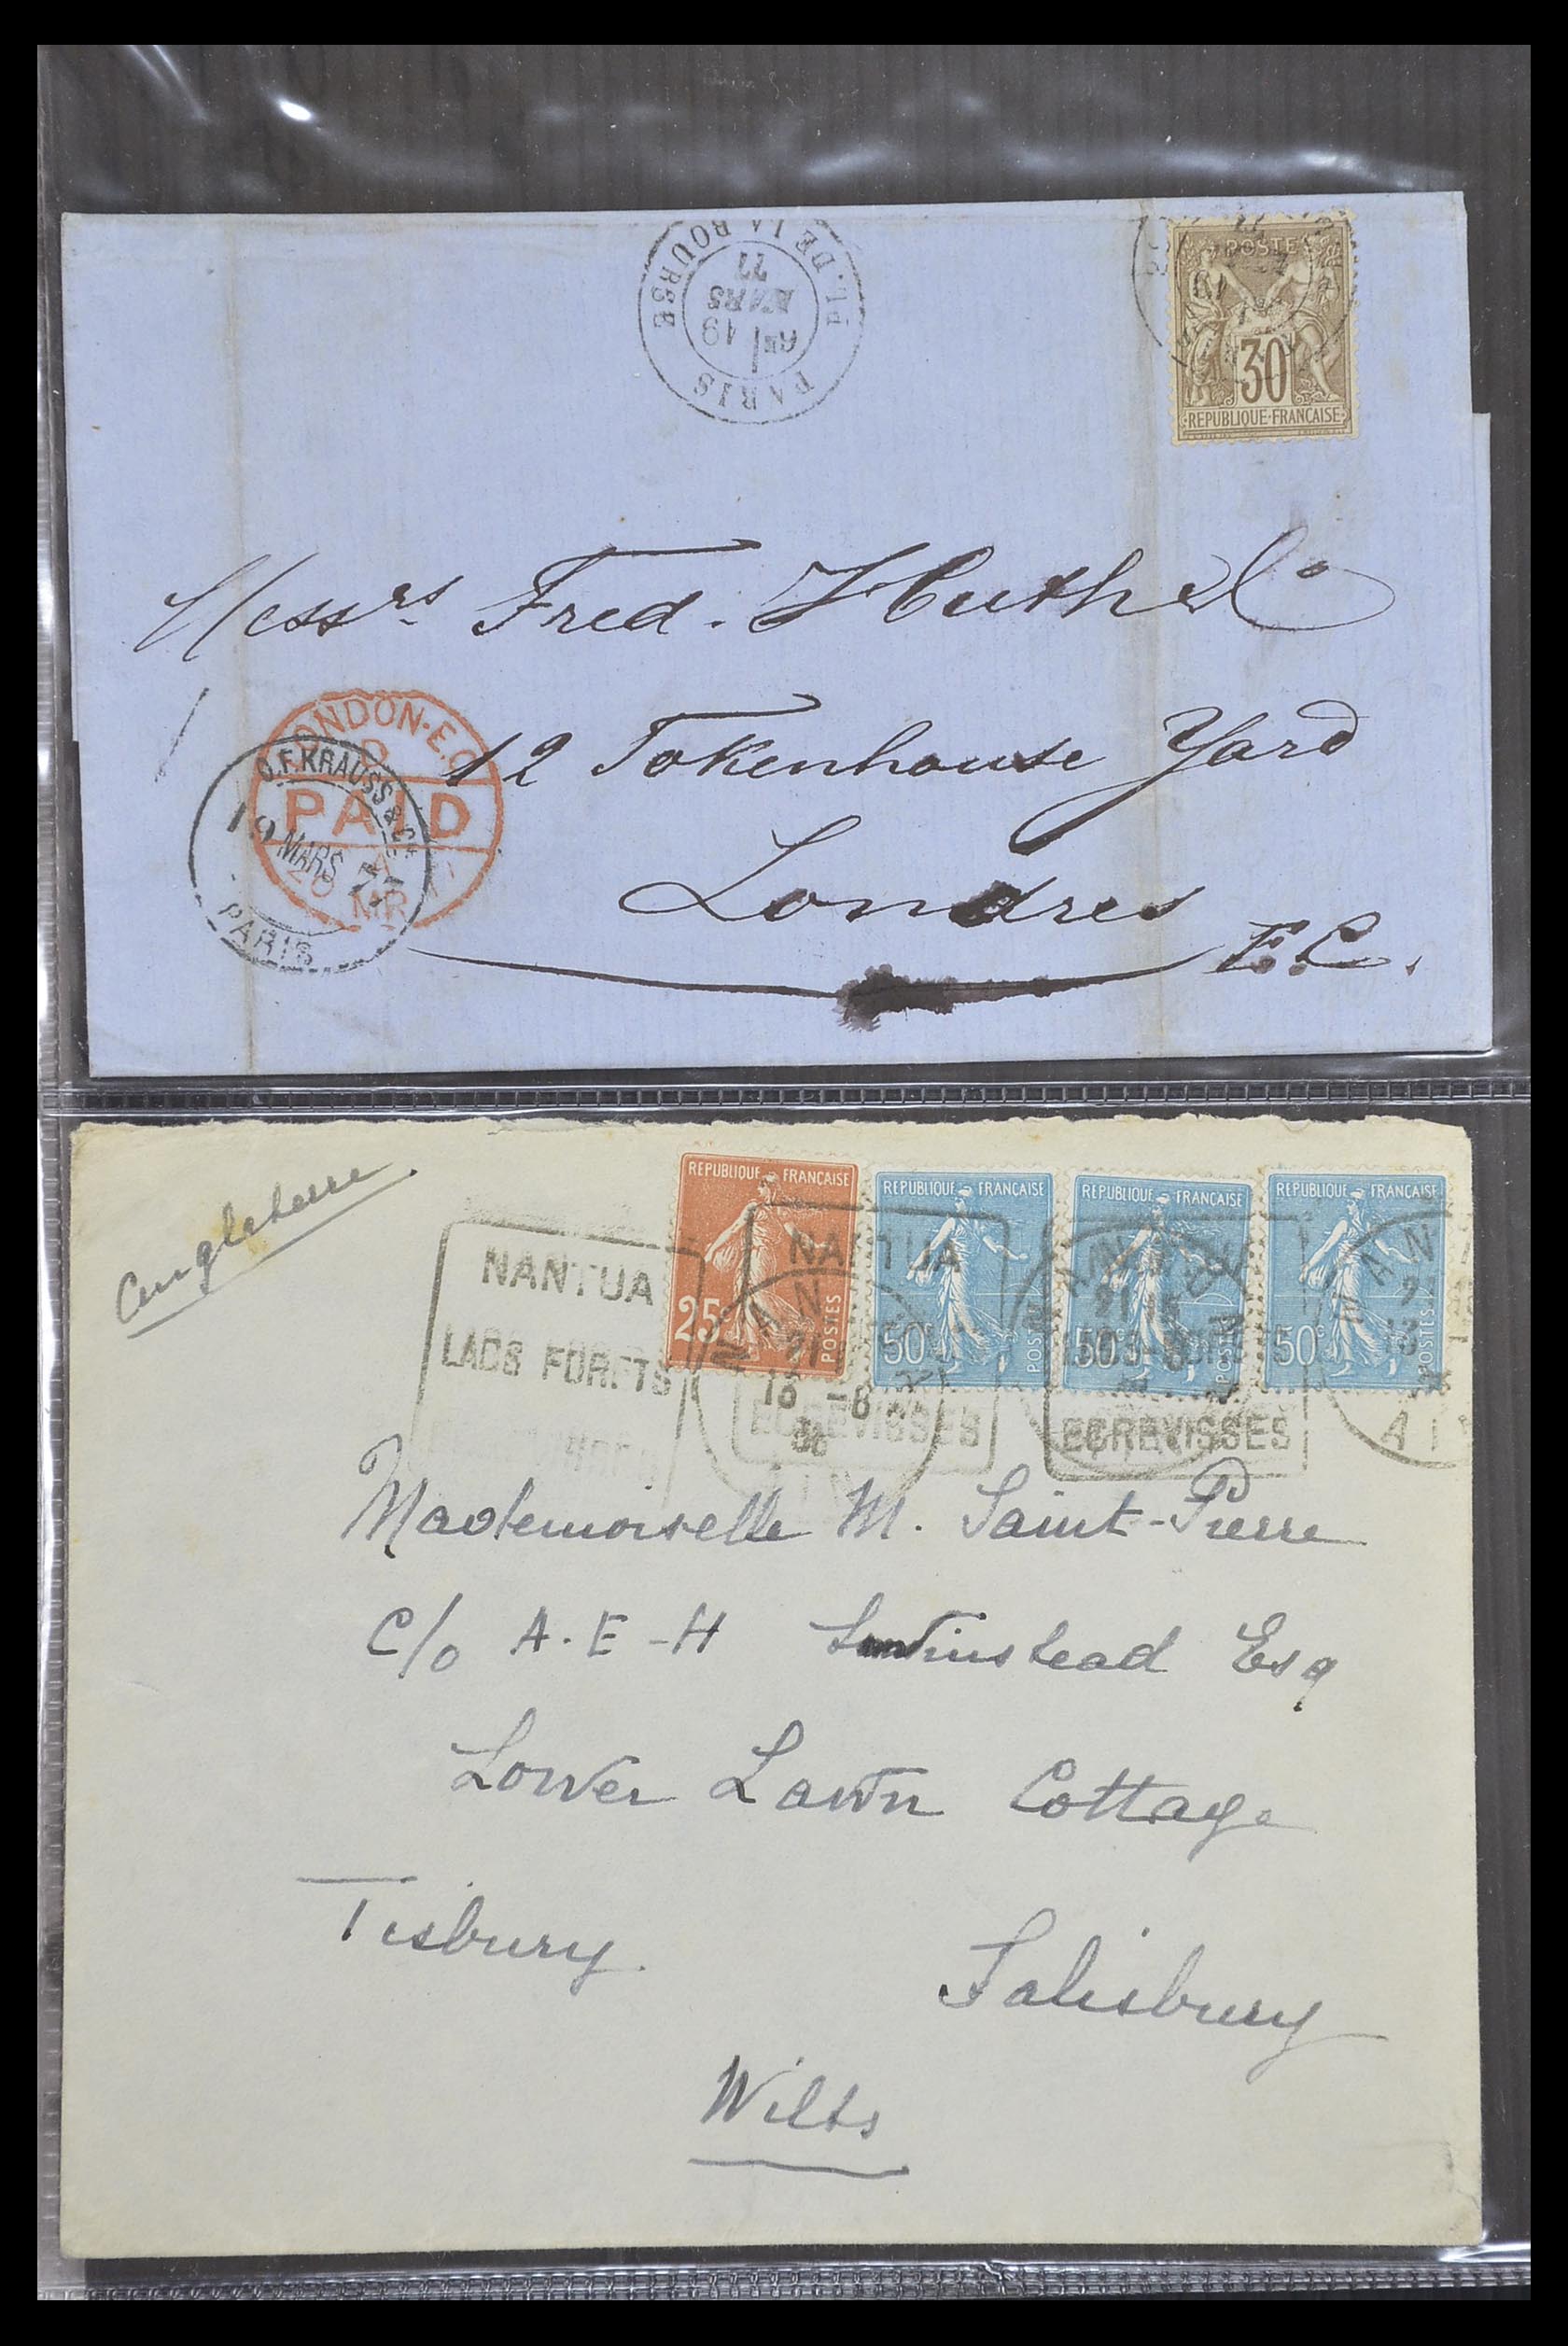 PARIS
PL. DE LA BOURSE
6E
19
MARS
77
POSTES
30
REPUBLIQUE·FRANCAISE
Messrs Fred. Huth & Co
12 Tokenhouse Yard
Londres
E.C.
LONDON·E.C
PAID
20 MR 77
O.F.KRAUSS & Cie
19 MARS 77
PARIS
Angleterre
REPUBLIQUE FRANCAISE
25c
POSTES
REPUBLIQUE FRANCAISE
50c
POSTES
REPUBLIQUE FRANCAISE
50c
POSTES
REPUBLIQUE FRANCAISE
50c
POSTES
NANTUA
LACS FORETS
NANTUA
ECREVISSES
NANTUA
LACS-FORETS
ECREVISSES
13 -8
36
AIN
Mademoiselle M. Saint-Pierre
C/o A.E-H Swinstead Esq
Lower Lawn Cottage
Tisbury.
Salisbury
Wilts